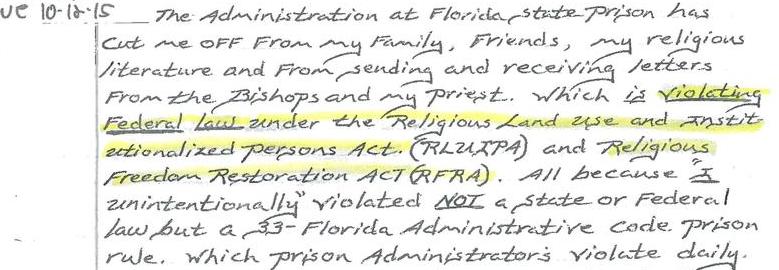 ue 10-12-15 The Administration at Florida state prison has
cut me off From my Family, Friends, my religious
literature and From sending and receiving letters
From the Bishops and my priest. Which is violating
Federal law under the Religious Land use and Instit-
utionalized persons Act. (RLUIPA) and Religious
Freedom Restoration ACT (RFRA). All because "I
unintentionally" violated NOT a state or Federal
law but a 33- Florida Administrative Code prison
rule. Which prison Administrators violate daily.